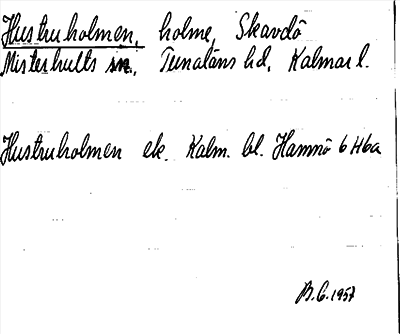 Hustruholmen, holme, Skavdö
Misterhults sn, Tunaläns hd, Kalmar l.
Hustruholmen ek. Kalm. bl. Hamnö 6 H6a
B.G. 1957